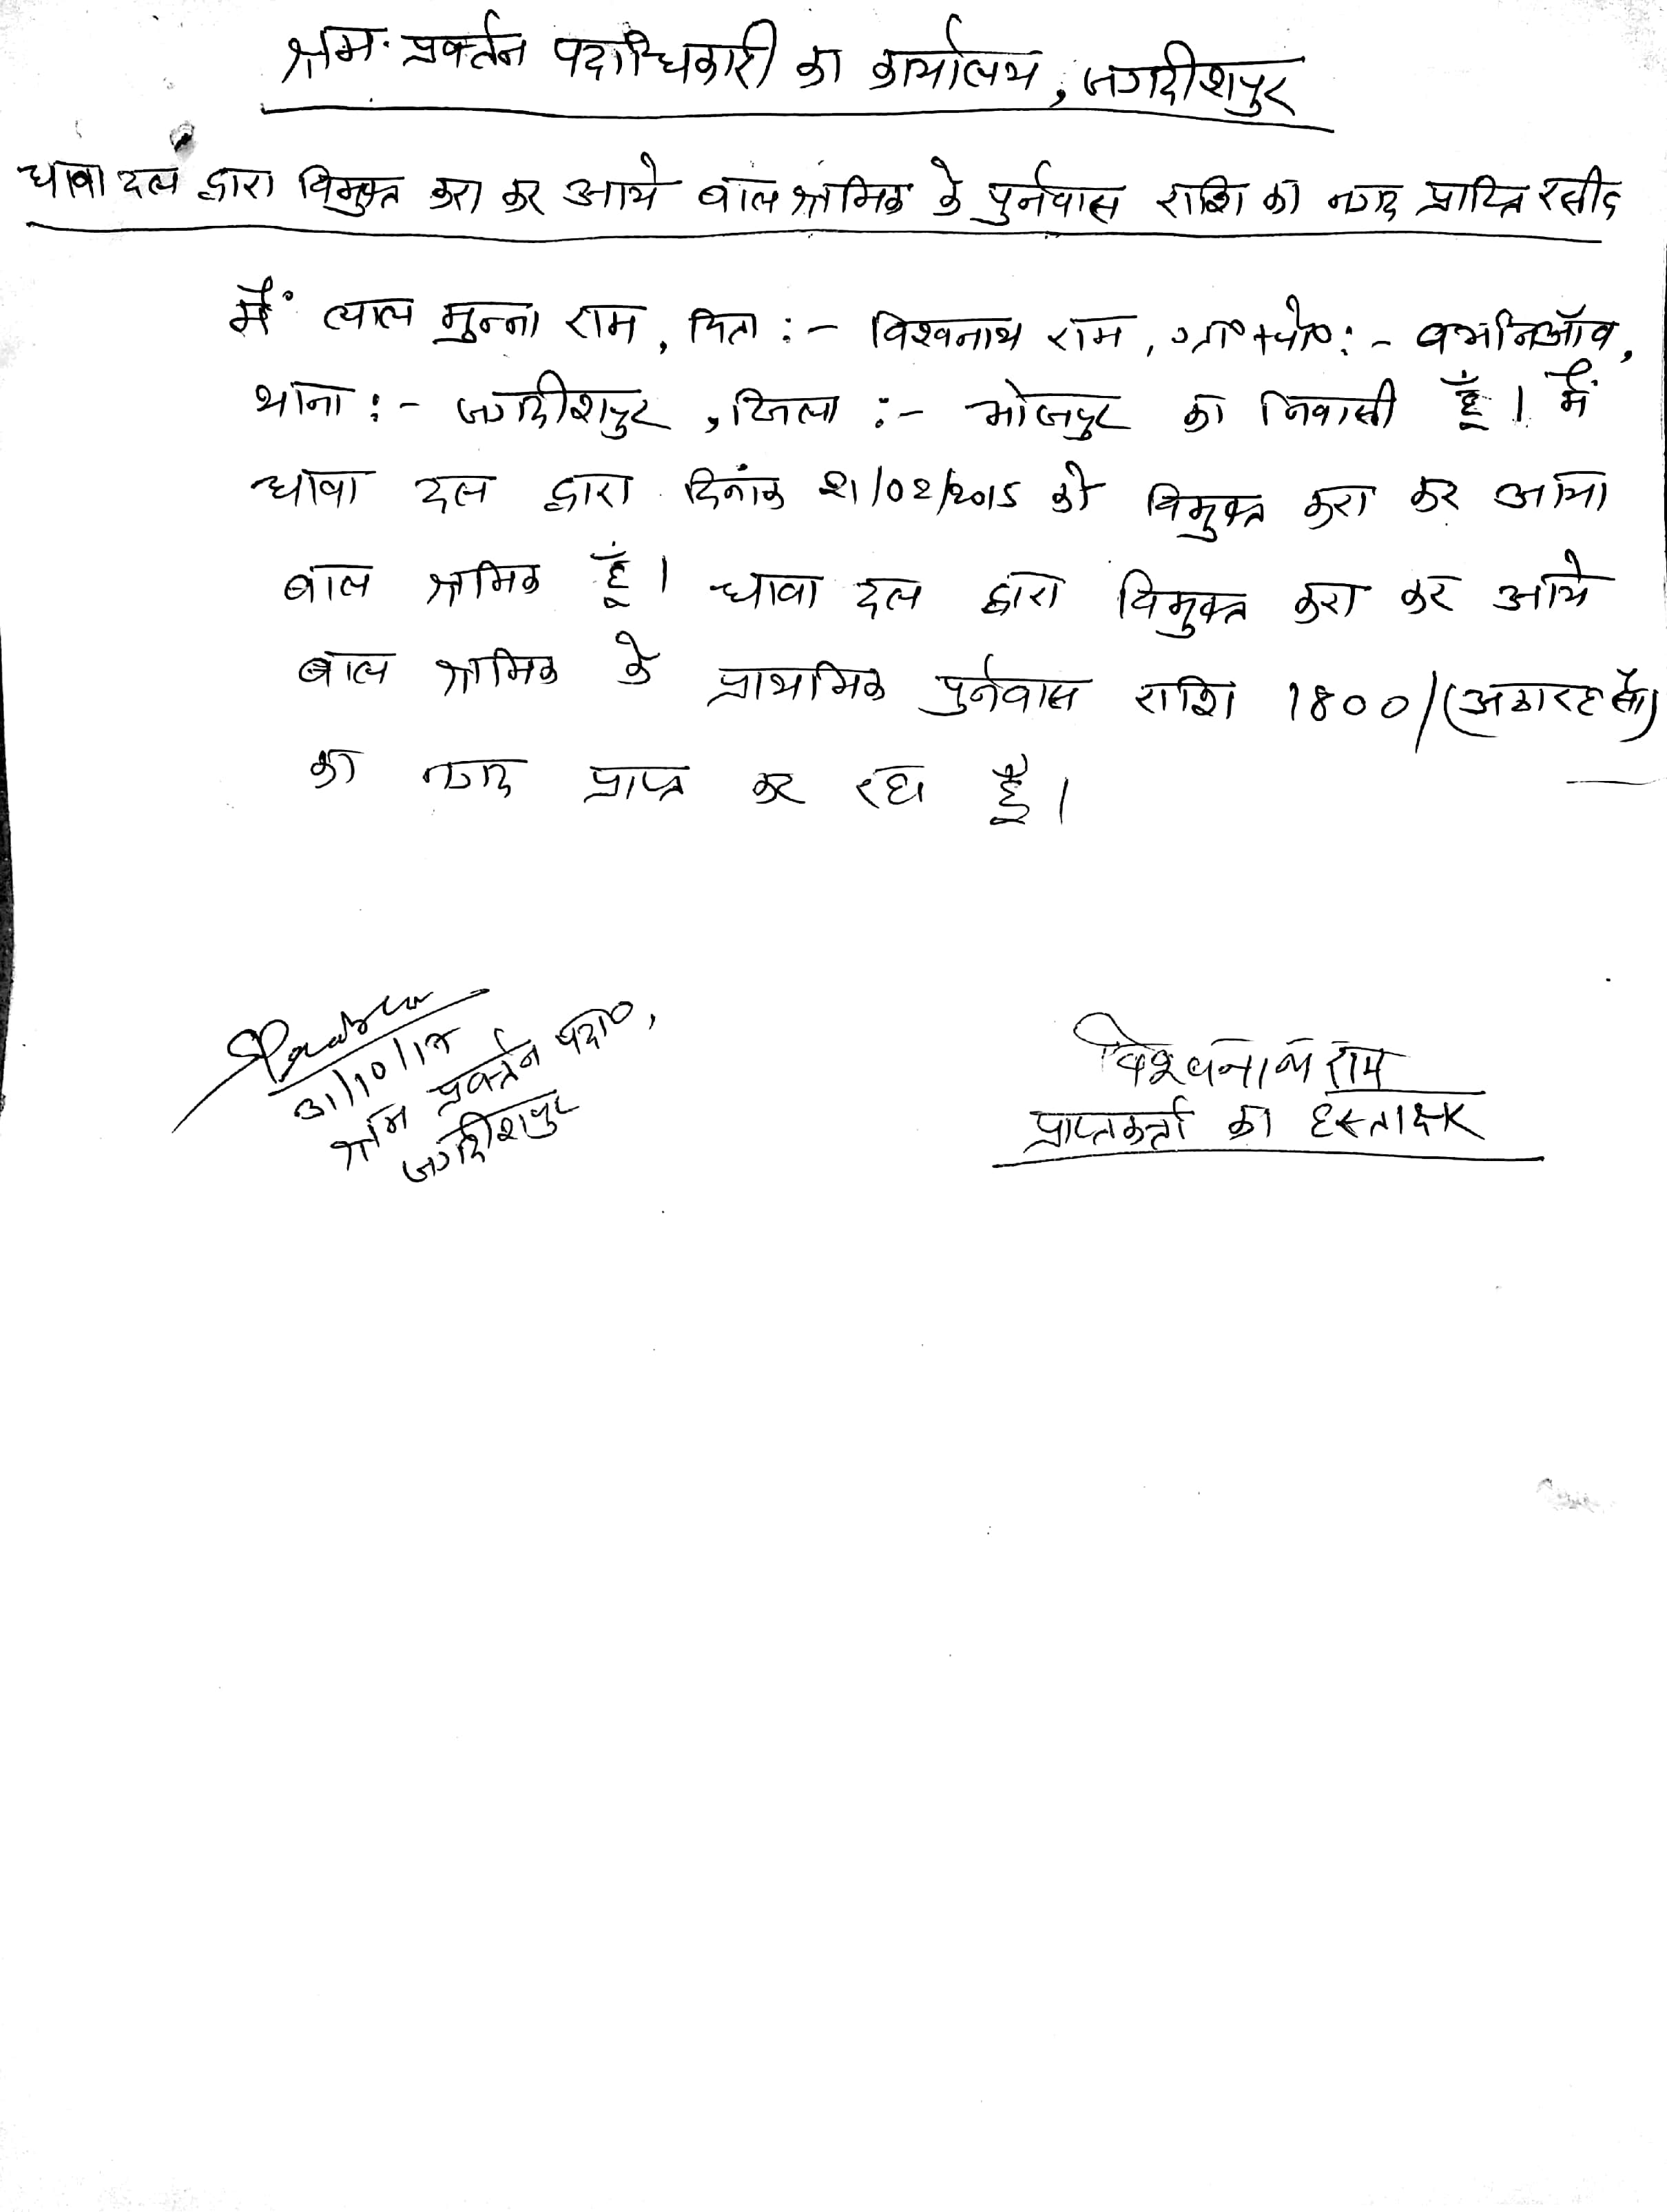 श्रम. प्रवर्तन पदाधिकारी का कार्यालय, जगदीशपुर
धावा दल द्वारा विमुक्त करा कर आये बाल श्रमिक के पुर्नवास राशि का नगद प्राप्ति रसीद
मैं लाल मुन्ना राम, पिता :- विश्वनाथ राम, ग्रा०+पो० :- बभनिऑव,
थाना :- जगदीशपुर, जिला :- भोजपुर का निवासी हूँ। मैं
धावा दल द्वारा दिनांक 21/02/2015 को विमुक्त करा कर आया
बाल श्रमिक हूँ। धावा दल द्वारा विमुक्त करा कर आये
बाल श्रमिक के प्राथमिक पुर्नवास राशि 1800/(अठारह सौ)
का नगद प्राप्त कर रहा हूँ।
31/10/17
श्रम प्रवर्तन पदा०,
जगदीशपुर
विश्वनाथ राम
प्राप्तकर्ता का हस्ताक्षर